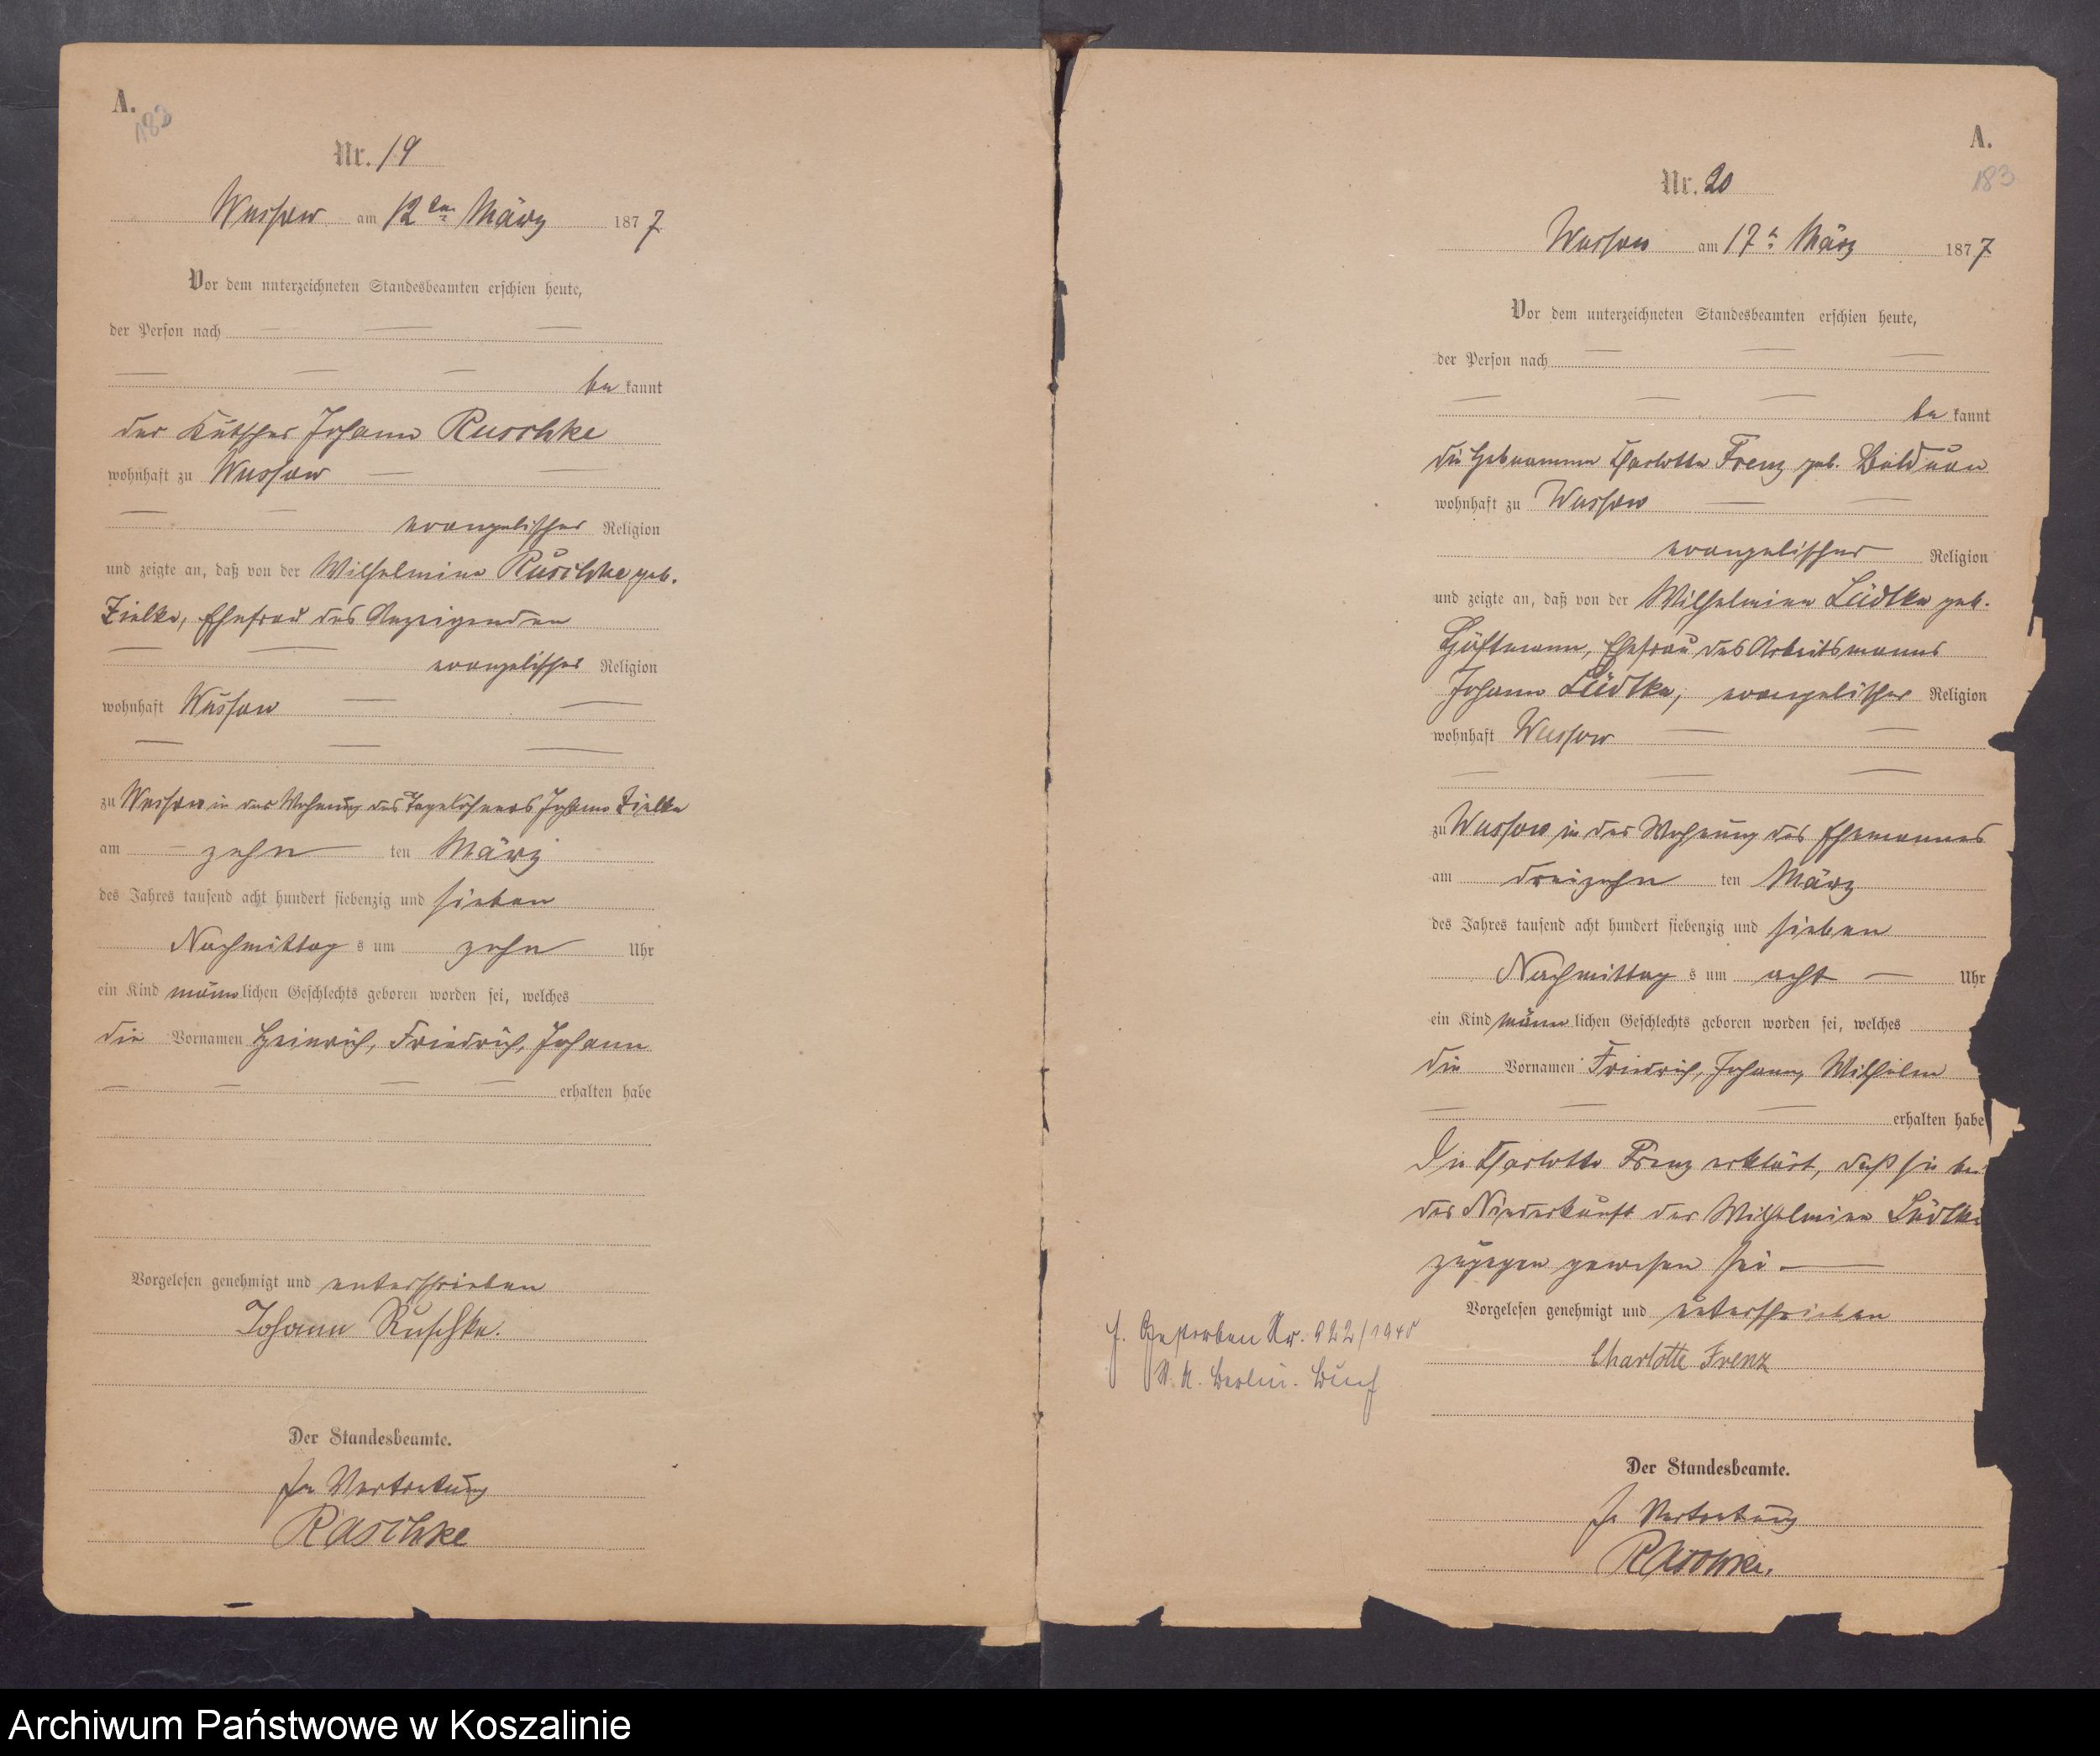 A.
183
Nr. 19
Wussow am 12ten März 1877
Vor dem unterzeichneten Standesbeamten erschien heute,
der Person nach
be kannt
der Kutscher Johann Ruschke
wohnhaft zu Wussow
evangelischer Religion
und zeigte an, daß von der Wilhelmine Ruschke geb.
Zielke, Ehefrau des Anzeigenden
evangelischer Religion
wohnhaft Wussow
zu Wussow in der Wohnung des Tagelöhners Johann Zielke
am zehn ten März
des Jahres tausend acht hundert siebenzig und sieben
Nachmittag s um zehn Uhr
ein Kind männ lichen Geschlechts geboren worden sei, welches
die Vornamen Heinrich, Friedrich, Johann
erhalten habe
Vorgelesen genehmigt und unterschrieben
Johann Ruschke.
Der Standesbeamte.
In Vertretung
Raschke
A.
183
Nr. 20
Wussow am 17t März 1877
Vor dem unterzeichneten Standesbeamten erschien heute,
der Person nach
be kannt
die Hebeamme Charlotte Frenz geb. Balduan
wohnhaft zu Wussow
evangelischer Religion
und zeigte an, daß von der Wilhelmine Lüdtke geb.
Ehefrau des Arbeitsmanns
Johann Lüdtke, evangelischer Religion
wohnhaft Wussow
zu Wussow in der Wohnung des Ehemannes
am dreizehn ten März
des Jahres tausend acht hundert siebenzig und sieben
Nachmittag s um acht Uhr
ein Kind männ lichen Geschlechts geboren worden sei, welches
die Vornamen Friedrich, Johann, Wilhelm
erhalten habe
Die Charlotte Frenz erklärt, daß sie bei
der Niederkunft der Wilhelmine Lüdtke
zugegen gewesen sei.
Vorgelesen genehmigt und unterschrieben
Charlotte Frenz
Gestorben Nr. 922/1940
St. A. Berlin-Buch
Der Standesbeamte.
In Vertretung
Raschke.
Archiwum Państwowe w Koszalinie